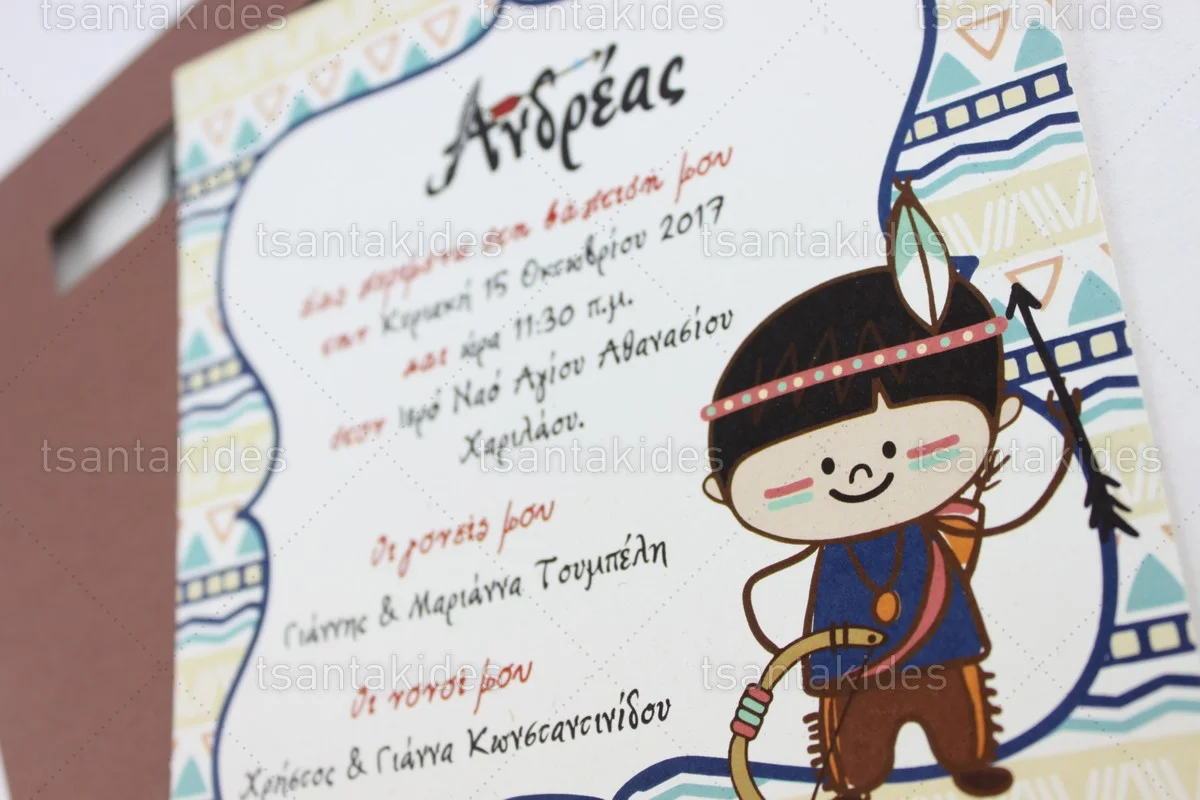 Ανδρέας
σας περιμένω στη βάπτισή μου
την Κυριακή 15 Οκτωβρίου 2017
και ώρα 11:30 π.μ.
στον Ιερό Ναό Αγίου Αθανασίου
Χαριλάου.
Οι γονείς μου
Γιάννης & Μαριάννα Τουμπέλη
Οι νονοί μου
Χρήστος & Γιάννα Κωνσταντινίδου
tsantakides
tsantakides
tsantakides
tsantakides
tsantakides
tsantakides
tsantakides
tsantakides
tsantakides
tsantakides